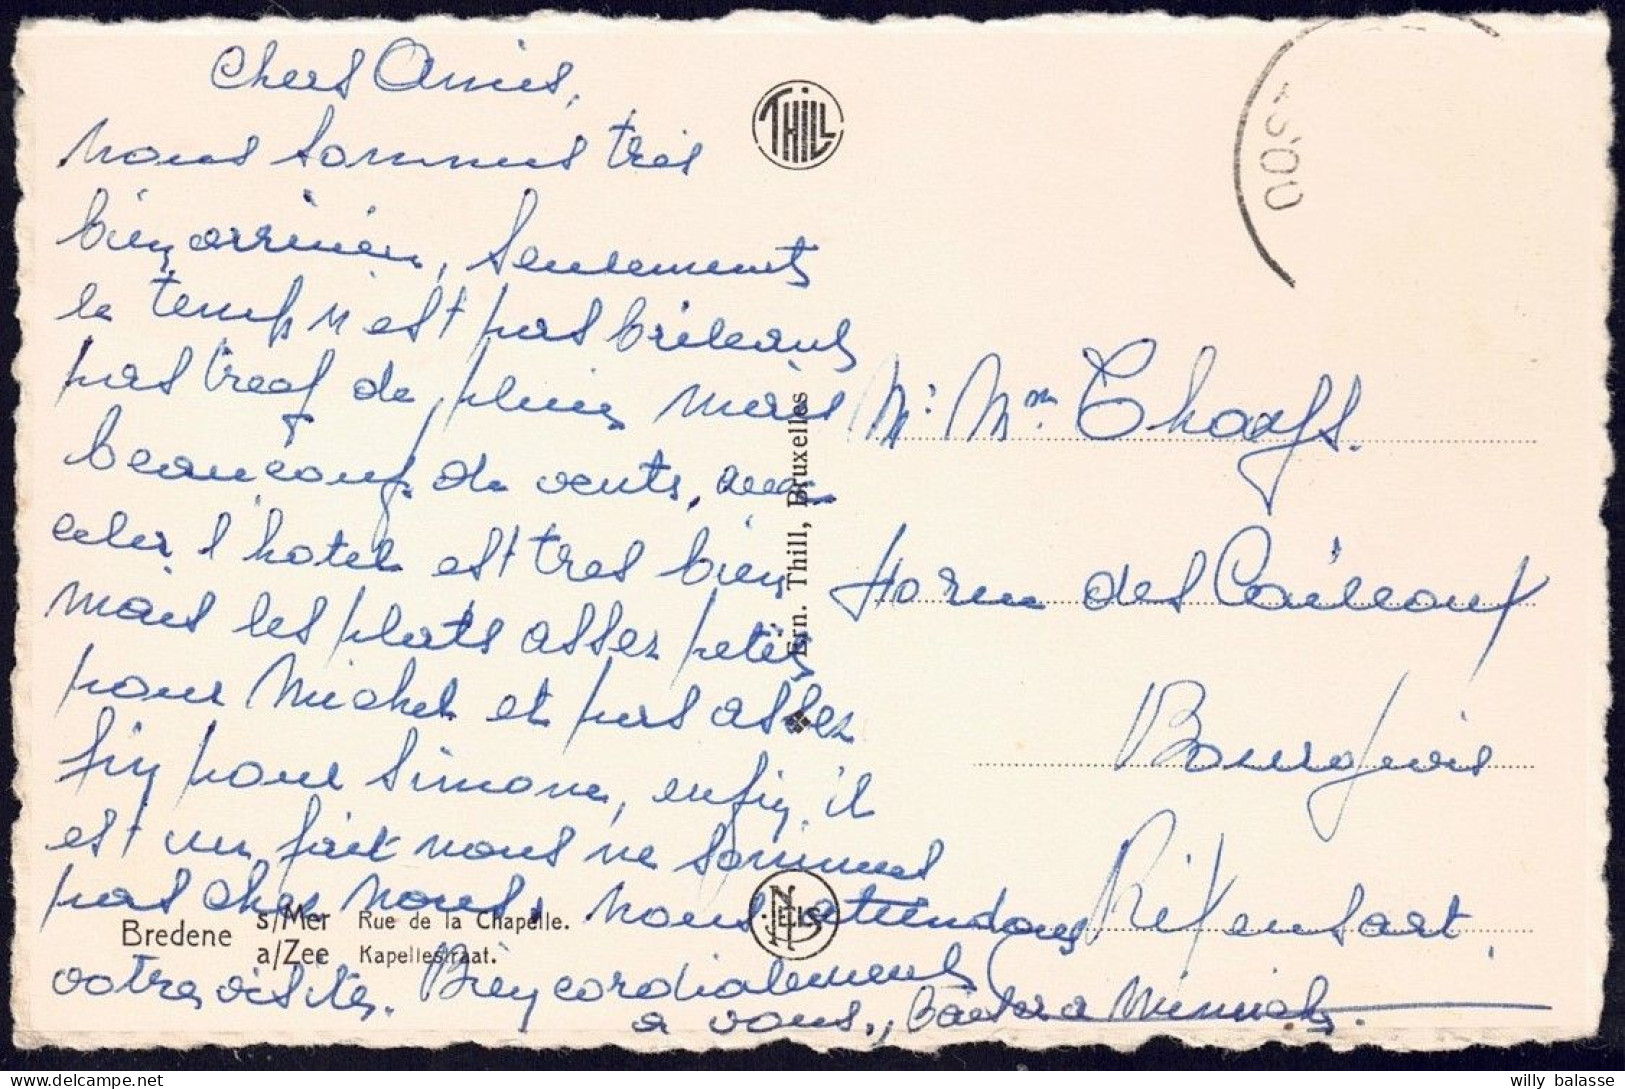 Chers Amis,
nous sommes très
bien arrivier, seulements
le temps n'est pas brileant
pas trop de pluie mais
beaucoup de vents, avec
cela, l'hotel est tres bien
mais les plats assez petits
pour Michel et pas assez
fin pour Simone, enfin, il
est un fait nous ne sommes
pas chez nous, nous attendons
votre visite. Bien cordialement
a vous,
THILL
Ern. Thill, Bruxelles
NELS
Bredene s/Mer Rue de la Chapelle.
a/Zee Kapellestraat.
Mr. Mme
des Cailloux
Bourgeois
Rixensart.
willy balasse